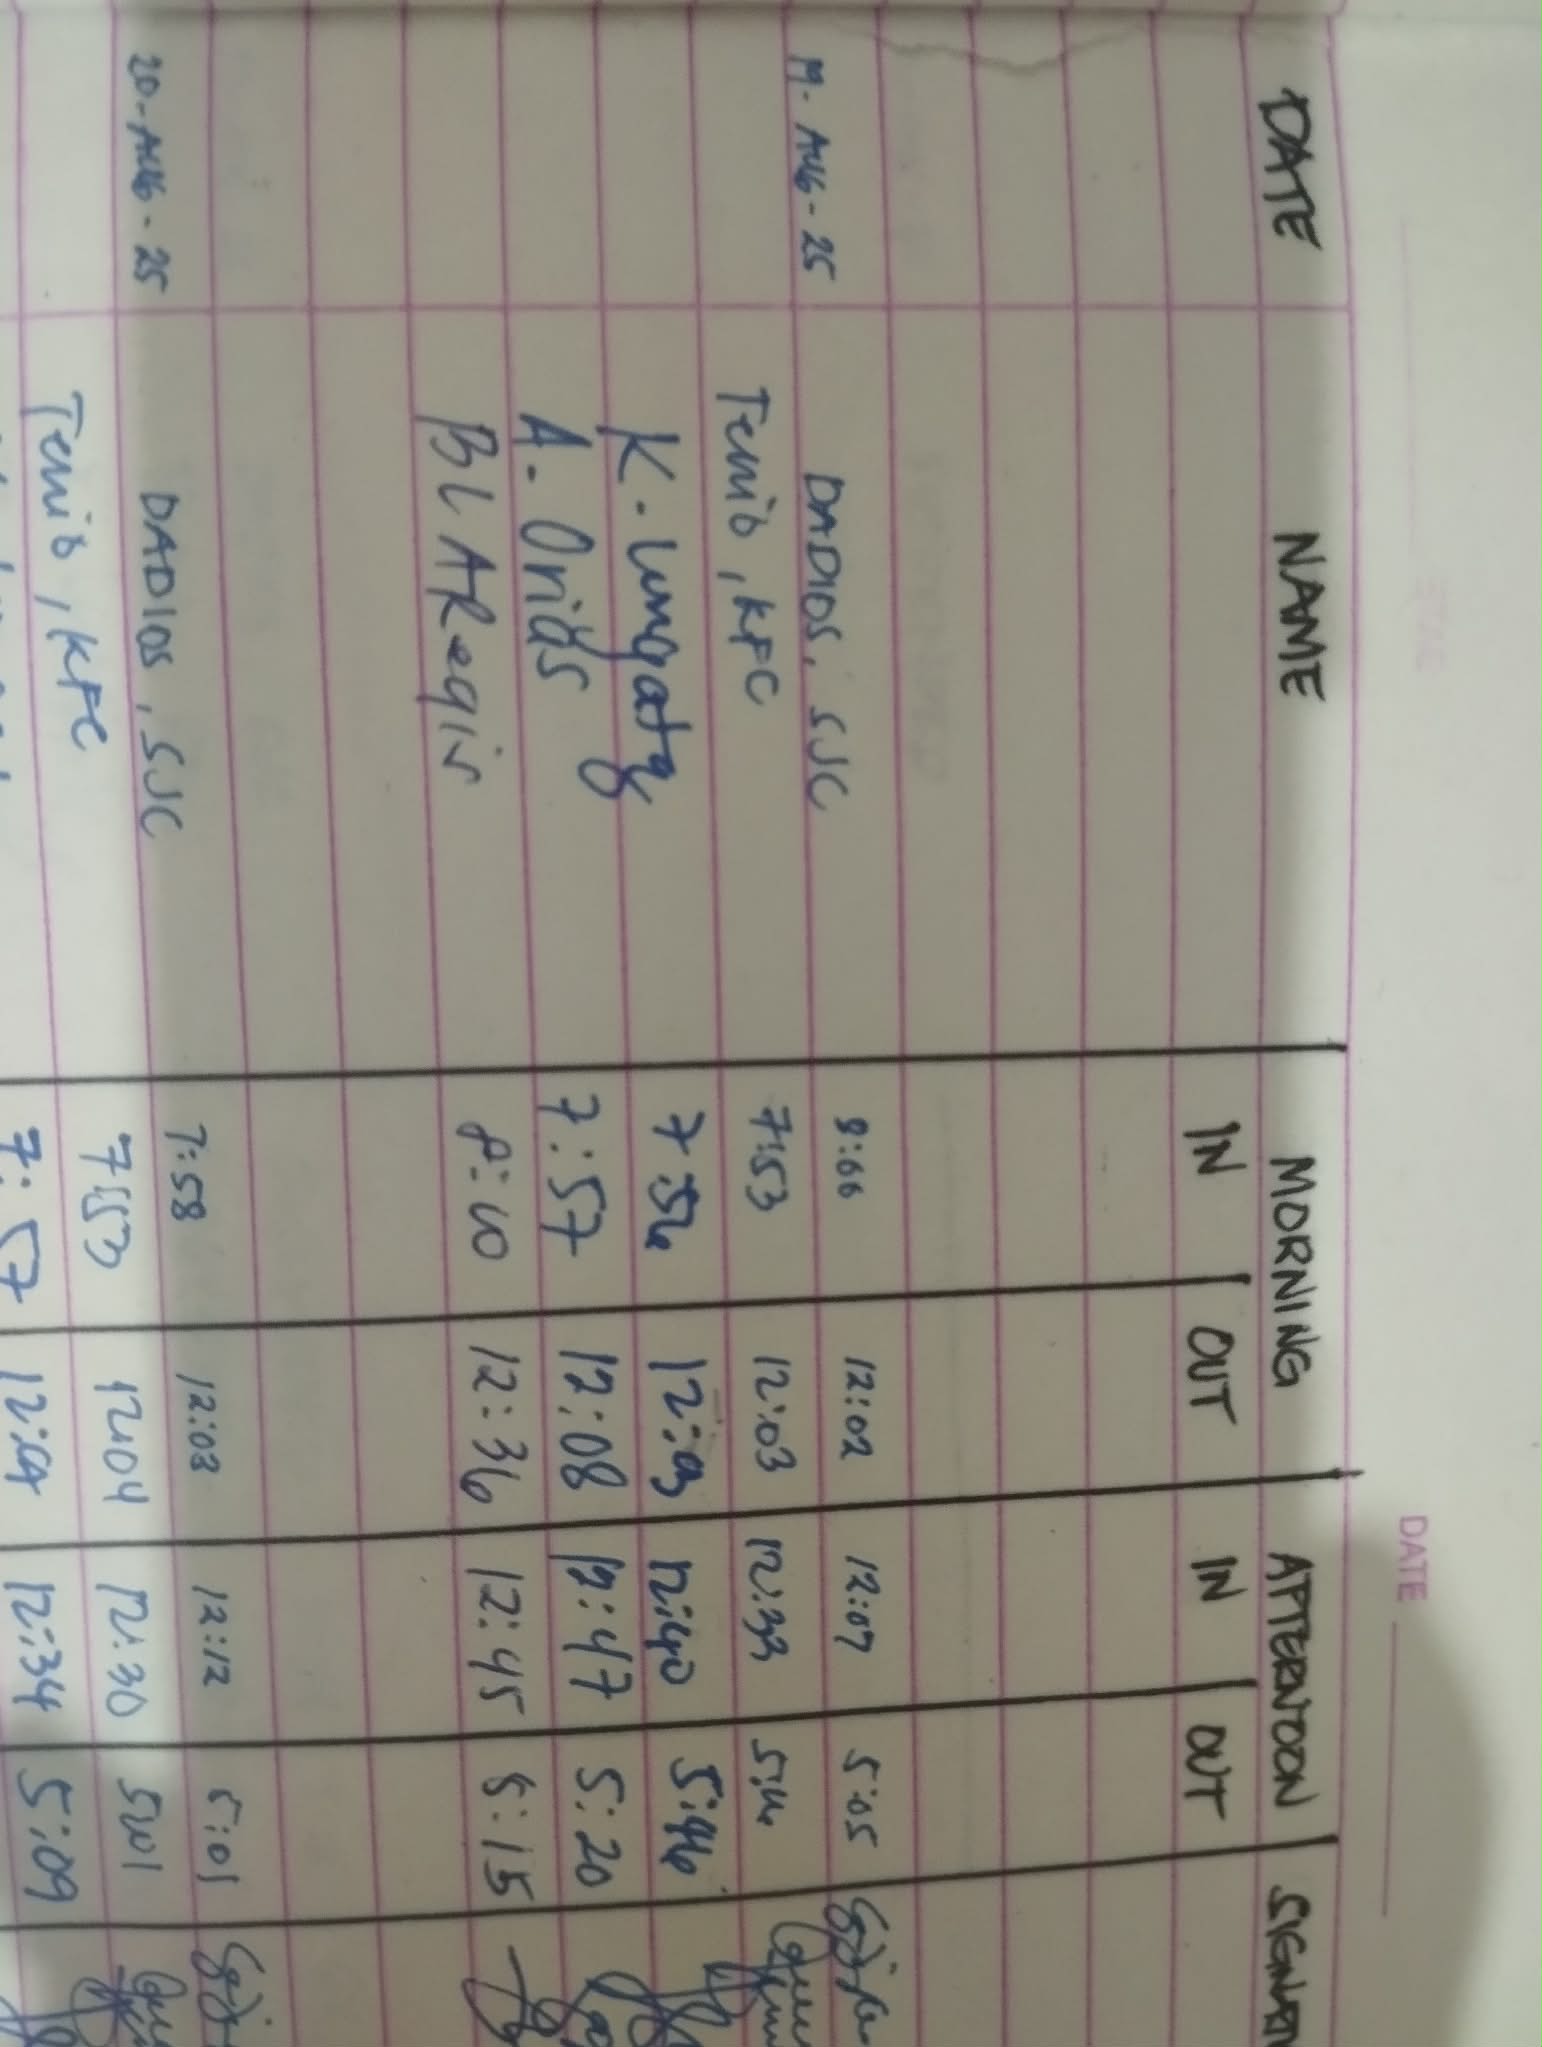 DATE
DATE NAME MORNING AFTERNOON SIGNAT
IN OUT IN OUT
19-AUG-25 DADIOS, SJC 8:00 12:02 12:07 5:05
Tenio, KFC 7:53 12:03 12:33
K. 12:03 12:40 5:46
A. Orias 7:57 12:08 12:47 5:20
BL ARegis 8:10 12:36 12:45 5:15
20-AUG-25 DADIOS, SJC 7:58 12:03 12:12 5:01
Tenio, KFC 7:53 12:04 12:30 5:01
7:57 12:04 12:34 5:09